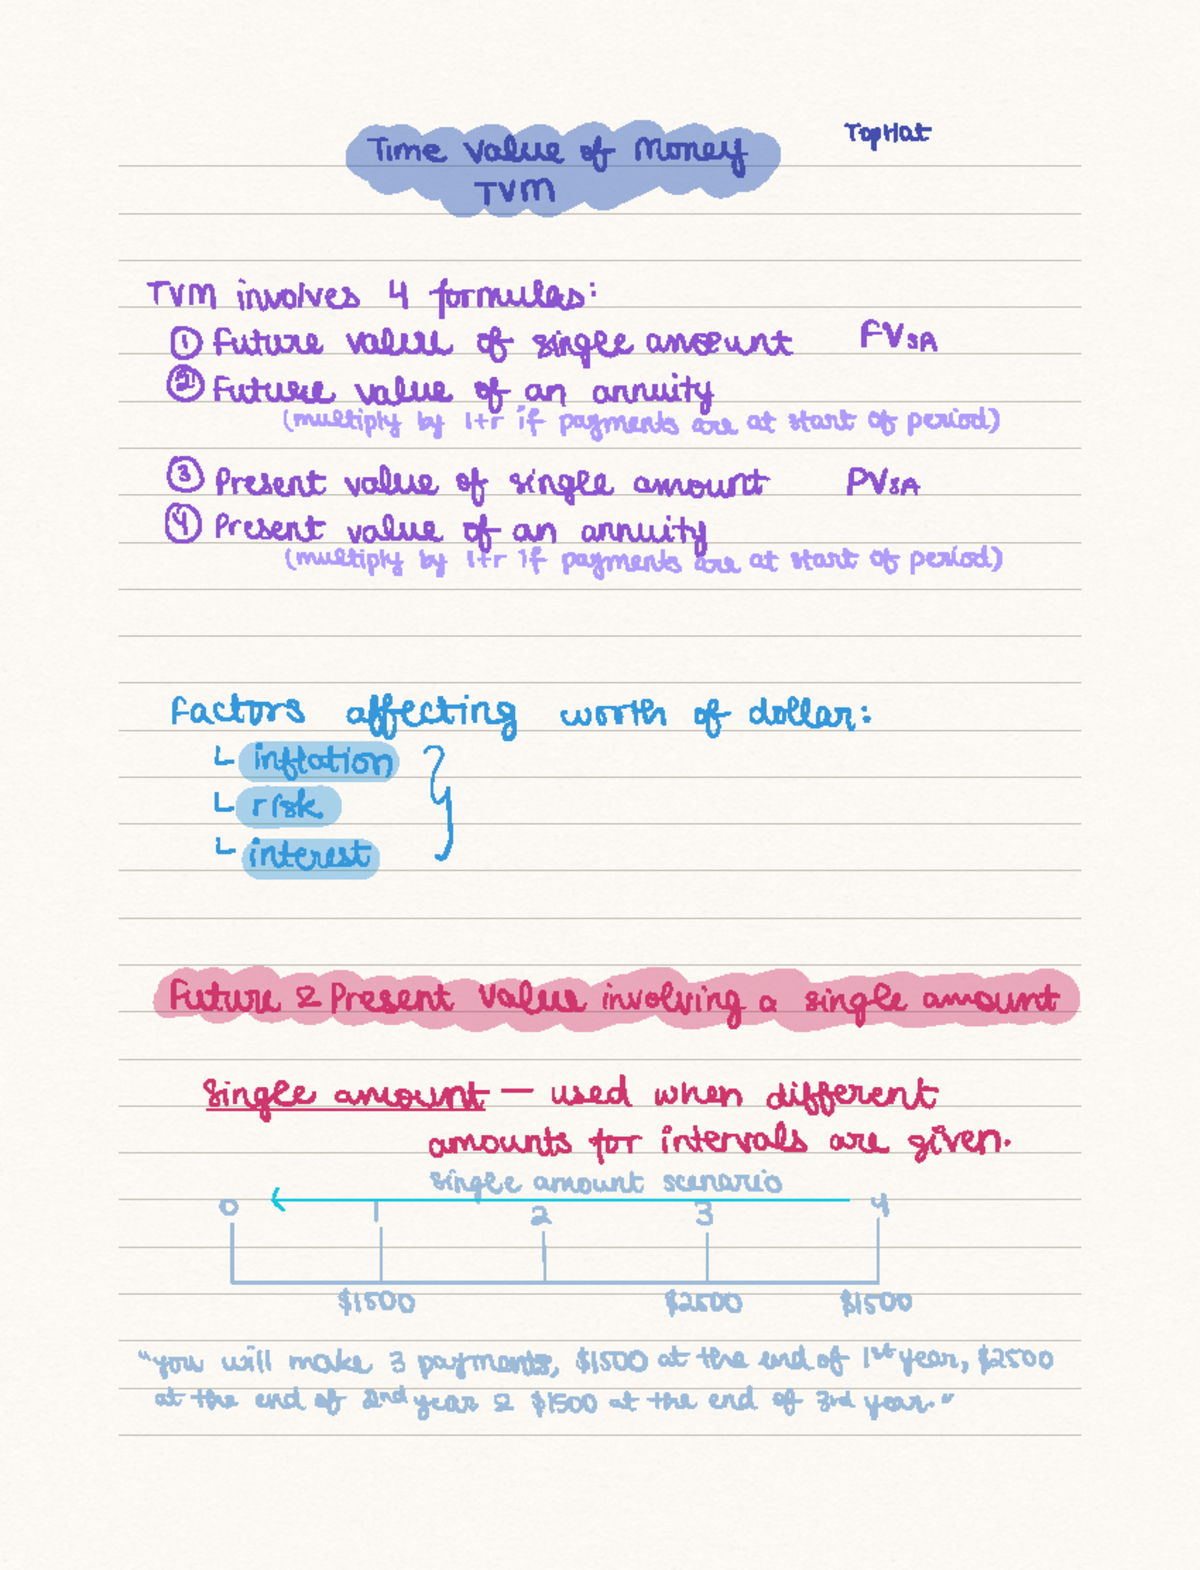 Time Value of Money
TVM
TopHat
TVM involves 4 formulas:
① Future value of single amount FVSA
② Future value of an annuity
(multiply by 1+r if payments are at start of period)
③ Present value of single amount PVSA
④ Present value of an annuity
(multiply by 1+r if payments are at start of period)
Factors affecting worth of dollar:
inflation
risk
interest
Future & Present Value involving a single amount
Single amount — used when different
amounts for intervals are given.
single amount scenario
0 1 2 3 4
$1500 $2500 $1500
"you will make 3 payments, $1500 at the end of 1st year, $2500
at the end of 2nd year & $1500 at the end of 3rd year."